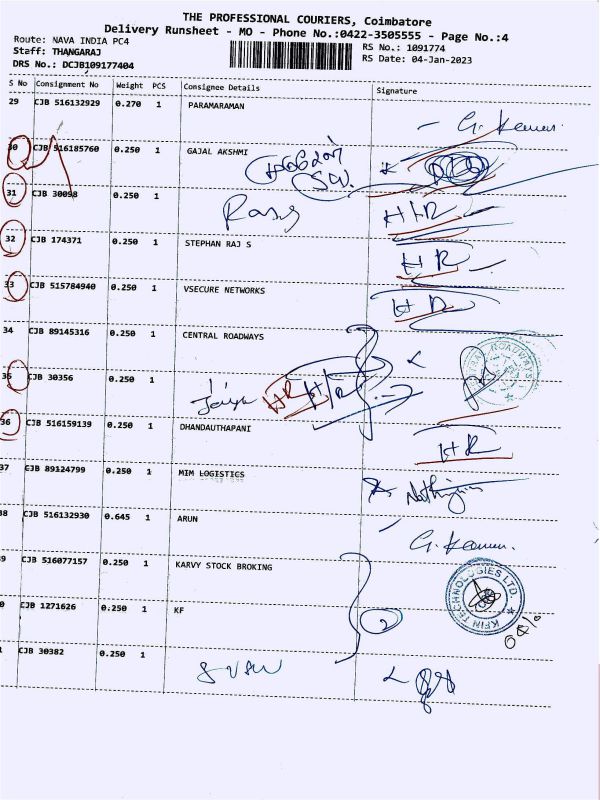 THE PROFESSIONAL COURIERS, Coimbatore
Delivery Runsheet - MO - Phone No.:0422-3505555 - Page No.:4
Route: NAVA INDIA PC4
RS No.: 1091774
Staff: THANGARAJ
RS Date: 04-Jan-2023
DRS No.: DCJB109177404
S No Consignment No Weight PCS Consignee Details Signature
29 CJB 516132929 0.270 1 PARAMARAMAN
G. Kannan
30 CJB 516185760 0.250 1 GAJAL AKSHMI
31 CJB 30098 0.250 1
HR
32 CJB 174371 0.250 1 STEPHAN RAJ S HR
33 CJB 515784940 0.250 1 VSECURE NETWORKS HR
34 CJB 89145316 0.250 1 CENTRAL ROADWAYS
35 CJB 30356 0.250 1 HR HR
36 CJB 516159139 0.250 1 DHANDAUTHAPANI HR
37 CJB 89124799 0.250 1 MIM LOGISTICS
38 CJB 516132930 0.645 1 ARUN
G. Kannan
9 CJB 516077157 0.250 1 KARVY STOCK BROKING
KFIN TECHNOLOGIES LTD.
0 CJB 1271626 0.250 1 KF 2
CJB 30382 0.250 1